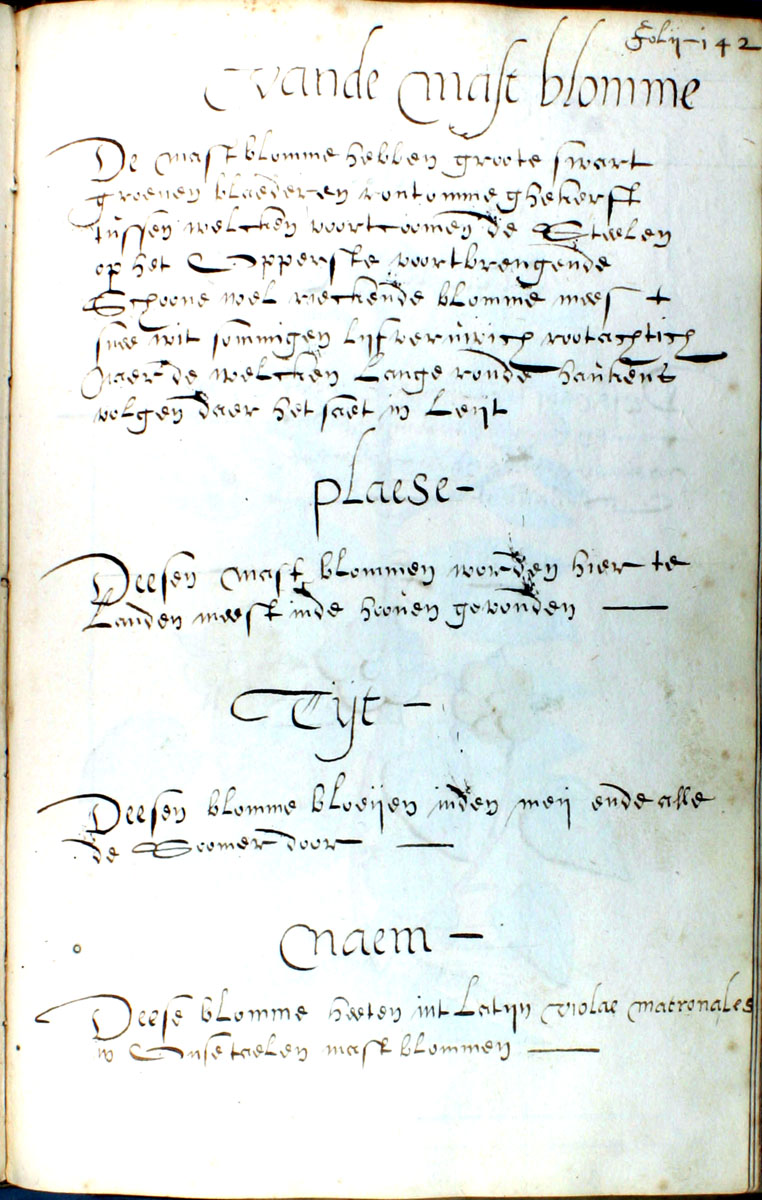 Folij 142
Vande Mast blomme
De mast blomme hebben groote swart
groenen blaederen rontomme ghekerft
tussen welcken voortcoomen de Steelen
op het Opperste voortbrengende
Schoone wel rieckende blomme mees +
snee wit sommigen lijfverwich rootachtich
Naer de welcken Lange ronde haukens
volgen daer het saet in Leijt
plaese -
Deesen mast blommen worden hier te
Landen meest inde hooven gevonden —
Tijt -
Deesen blomme bloeijen inden meij ende alle
de Soomer door —
Naem -
Deese blomme heeten int Latijn violae matronales
in Onse taelen mast blommen —